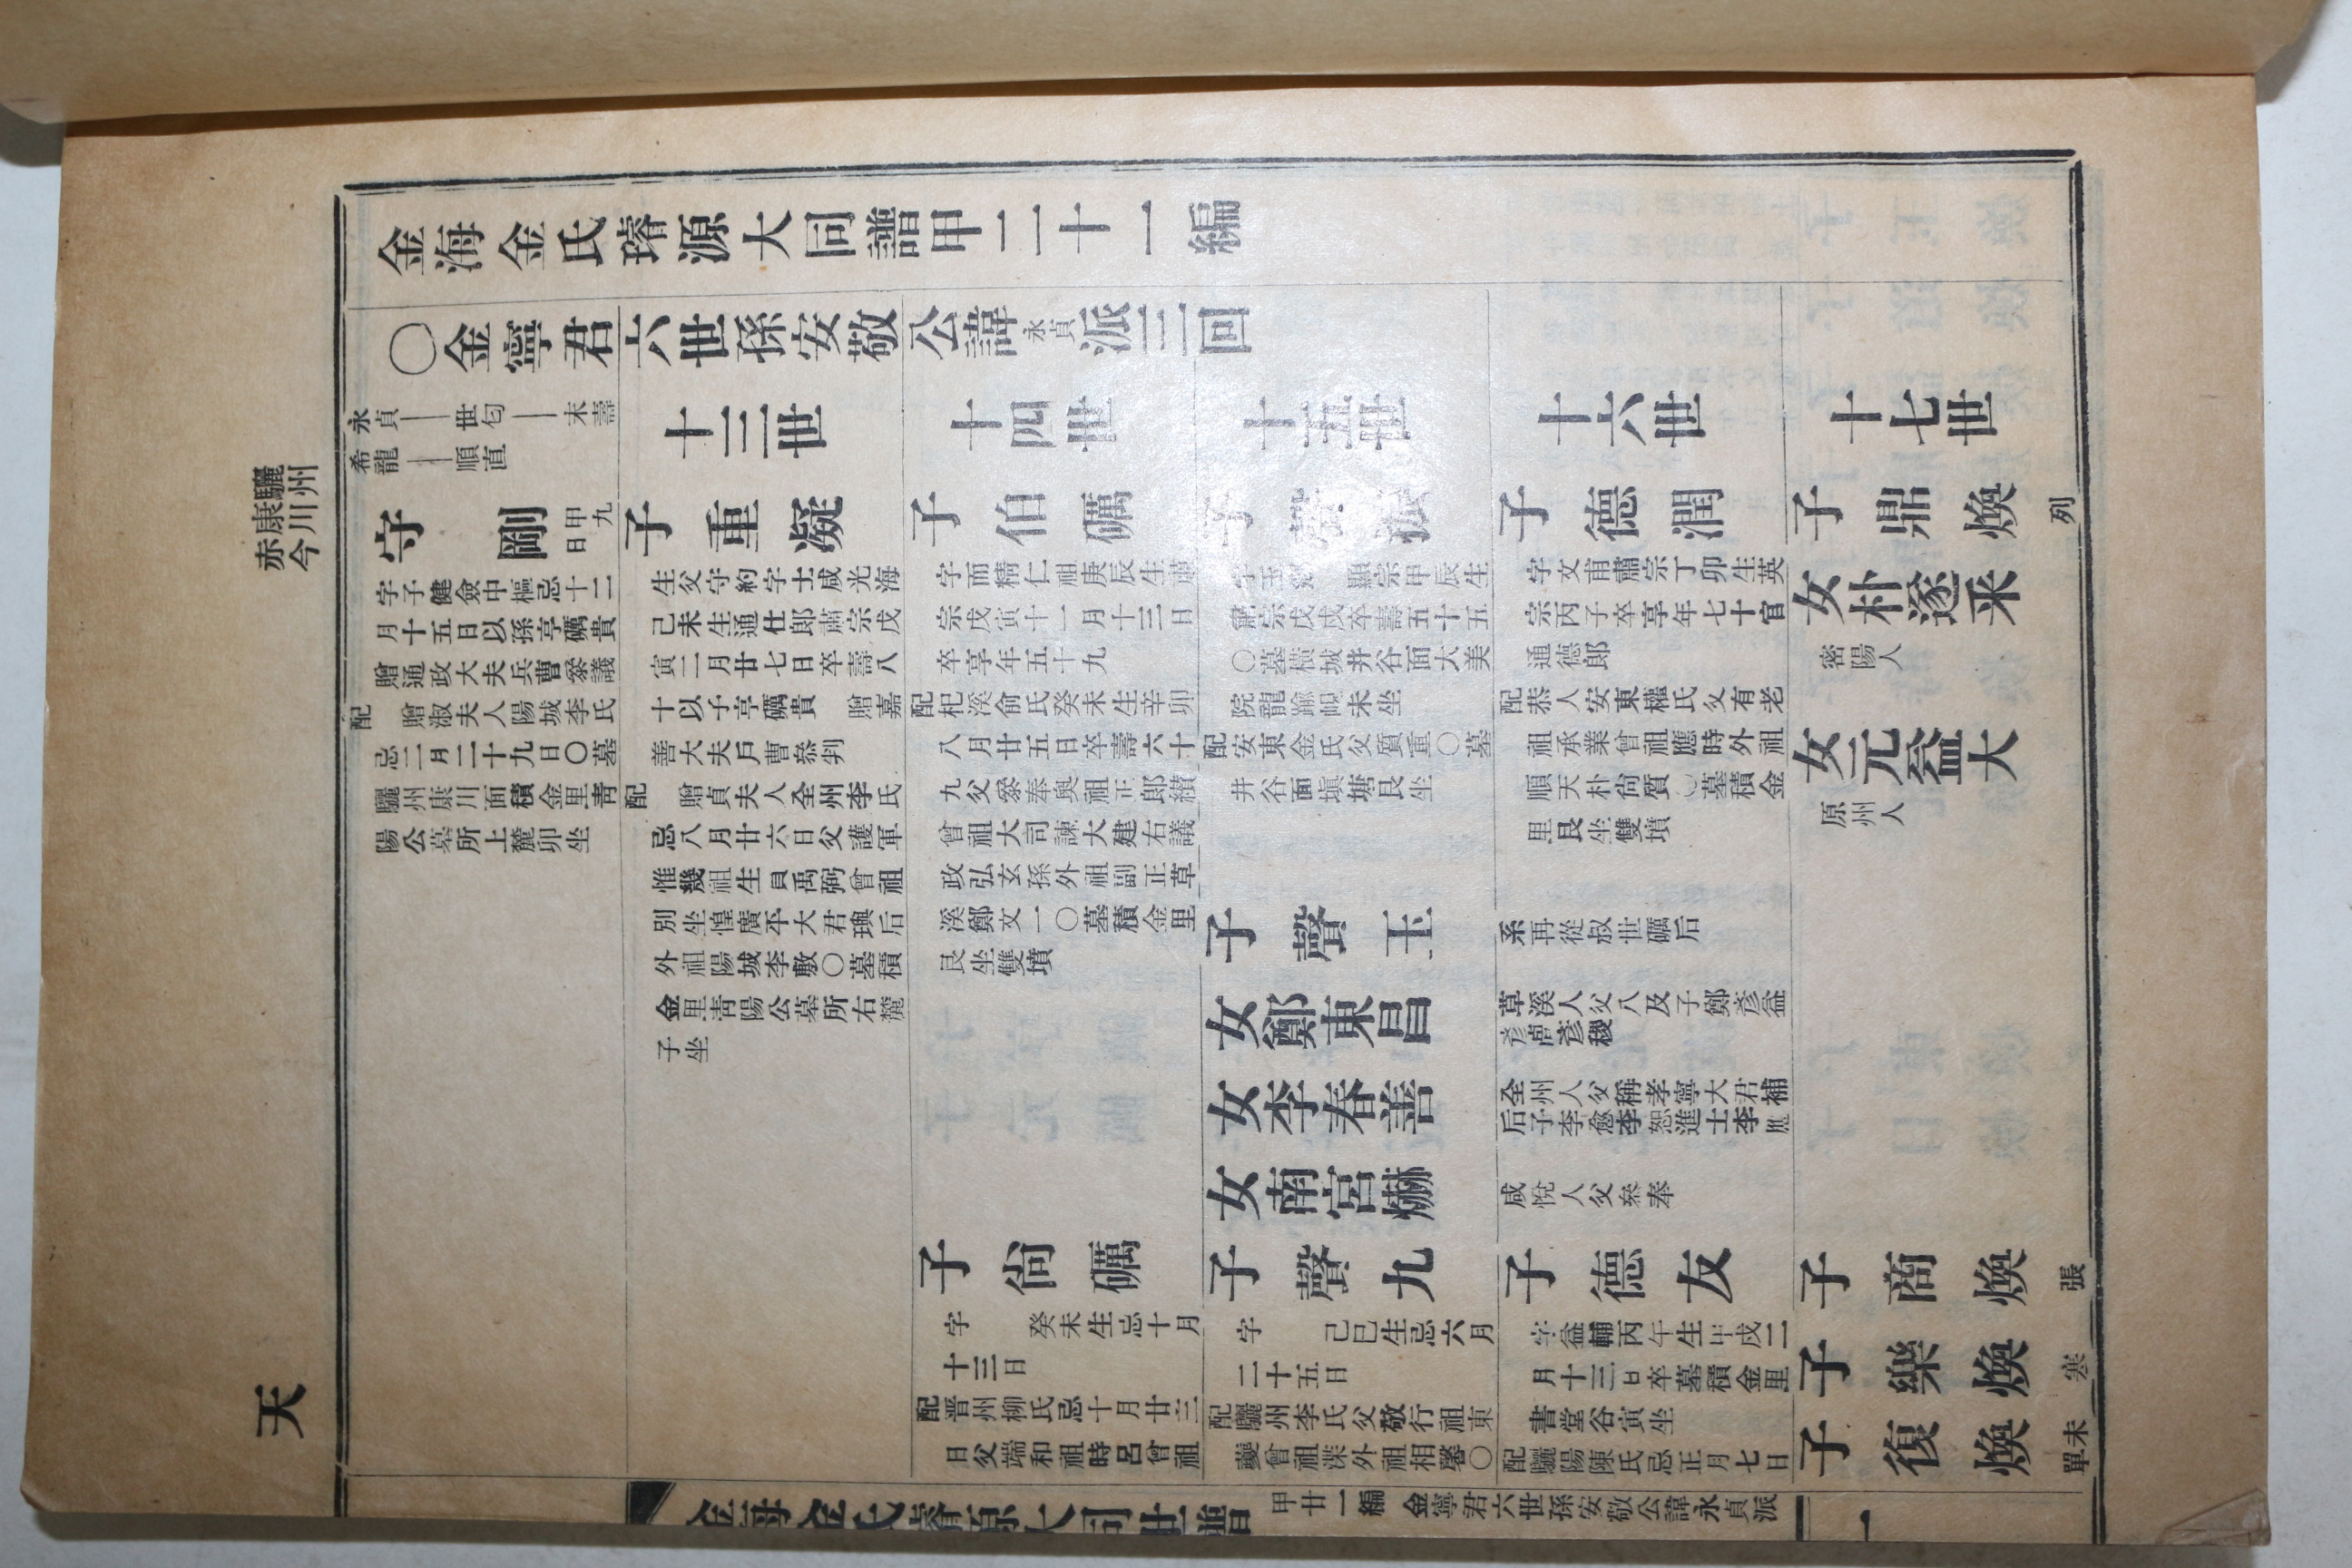 天
驪州
康川
赤今
金海金氏璿源大同譜甲二十一編
〇金寧君六世孫安敬公諱永貞派三回
永貞—世匀—末壽
希龍—順直
守剛 甲九日
字子健僉中樞忌十二
月十五日以孫亨礪貴
贈通政大夫兵曹叅議
配 贈淑夫人陽城李氏
忌二月二十九日〇墓
驪州康川面積金里靑
陽公墓所上麓卯坐
十三世
子重凝
生父守約字士咸光海
己未生通仕郎肅宗戊
寅二月廿七日卒壽八
十以子亨礪貴 贈嘉
善大夫戶曹叅判
配 贈貞夫人全州李氏
忌八月廿六日父護軍
惟幾祖生員禹弼曾祖
別坐惶廣平大君璵后
外祖陽城李敷〇墓積
金里靑陽公墓所右麓
子坐
十四世
子伯礪
字而精仁祖庚辰生肅
宗戊寅十一月十三日
卒享年五十九
配杞溪俞氏癸未生辛卯
八月廿五日卒壽六十
九父叅奉奧祖正郎纘
曾祖大司諫大建右議
政弘玄孫外祖副正草
溪鄭文一〇墓積金里
艮坐雙墳
子尙礪
字 癸未生忌十月
十三日
配晋州柳氏忌十月廿三
日父端和祖時呂曾祖
十五世
子聲振
字玉 顯宗甲辰生
肅宗戊戌卒壽五十五
〇墓橫城井谷面大美
院龍踰峴未坐
配安東金氏父質重〇墓
井谷面塡塘艮坐
子聲玉
女鄭東昌
女李春善
女南宮爀
子聲九
字 己巳生忌六月
二十五日
配驪州李氏父敬行祖東
蘷曾祖渫外祖相馨〇
十六世
子德潤
字文甫肅宗丁卯生英
宗丙子卒享年七十官
通德郎
配恭人安東權氏父有老
祖承業曾祖應時外祖
順天朴尙質〇墓積金
里艮坐雙墳
系再從叔世礪后
草溪人父八及子鄭彥益
彥卨彥稷
全州人父稱孝寧大君補
后子李愈李恕進士李應
咸悅人父叅奉
子德友
字益輔丙午生甲戌二
月十三日卒墓積金里
書堂谷寅坐
配驪陽陳氏忌正月七日
十七世
子鼎煥 列
女朴遂釆
密陽人
女元益大
原州人
子商煥 張
子樂煥 寒
子復煥 未單
金海金氏璿源大同世譜 甲廿一編 金寧君六世孫安敬公諱永貞派 一